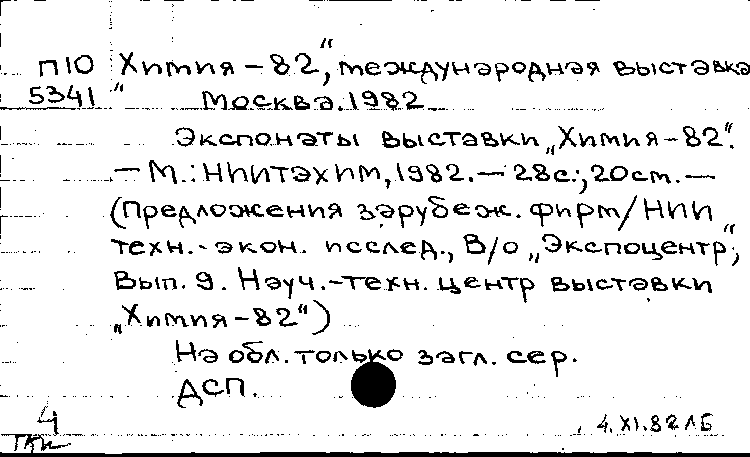 П10 „Химия – 82“, международная выставка
5341 Москва. 1982
Экспонаты выставки „Химия – 82“.
— М.: НИИТЭХИМ, 1982. — 28с.; 20см. —
(Предложения зарубеж. фирм/НИИ
техн.-экон. исслед., В/о „Экспоцентр“;
Вып. 9. Науч.-техн. центр выставки
„Химия – 82“)
На обл. только загл. сер.
ДСП.
4
4.XI.82 ЛБ